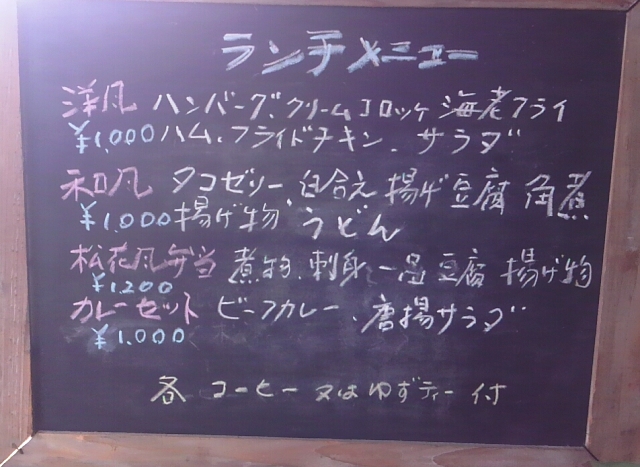 ランチメニュー
洋凡 ハンバーグ、クリームコロッケ 海老フライ
¥1,000 ハム、フライドチキン、サラダ
和凡 タコゼリー、白合え 揚げ豆腐 角煮
¥1,000 揚げ物、うどん
松花凡弁当 煮物、刺身一品 豆腐 揚げ物
¥1,200
カレーセット ビーフカレー、唐揚サラダ
¥1,000
各 コーヒー又はゆずティー付